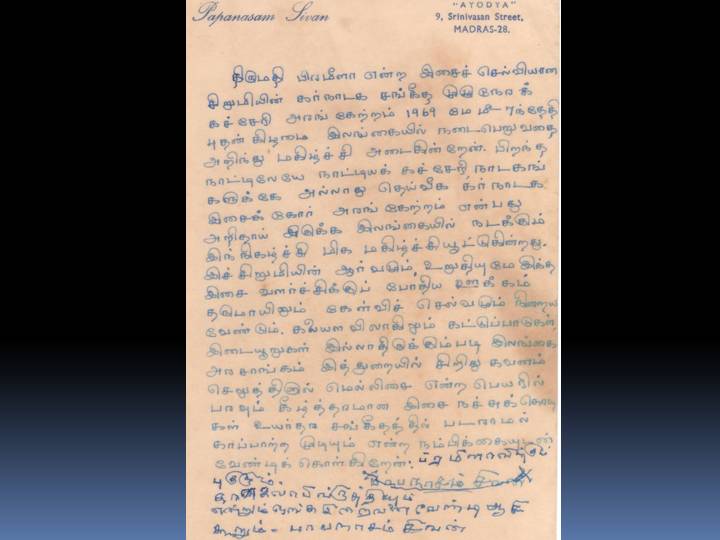 Papanasam Sivan
"AYODYA"
9, Srinivasan Street,
MADRAS-28.
திருமதி பிரமீளா என்ற இசைச் செல்வியான
சிறுமியின் கர்நாடக சங்கீத முழுநேரக்
கச்சேரி அரங்கேற்றம் 1969 மே மீ 7ந்தேதி
புதன் கிழமை இலங்கையில் நடைபெறுவதை
அறிந்து மகிழ்ச்சி அடைகின்றேன். பிறந்த
நாட்டிலேயே நாட்டியக் கச்சேரி நாடகங்
களுக்கே அல்லாது தெய்வீக கர்நாடக
இசைக்கோர் அரங்கேற்றம் என்பது
அரிதாய் இருக்க இலங்கையில் நடக்கும்
இந்நிகழ்ச்சி மிக மகிழ்ச்சியூட்டுகின்றது.
இச்சிறுமியின் ஆர்வமும், உறுதியுமே இக்த
இசை வளர்ச்சிக்குப் போதிய ஊக்கம்
தருமாயினும் கேள்விச் செல்வமும் நிறைய
வேண்டும். கலையளவிலாகிலும் கட்டுப்பாடுகள்
இடையூறுகள் இல்லாதிருக்கும்படி இலங்கை
அரசாங்கம் இத்துறையில் சிறிது கவனம்
செலுத்தினால் மெல்லிசை என்ற பெயரில்
பரவும் கீழ்த்தரமான இசை நச்சுக்கொடி
கள் உயர்தர சங்கீதத்தில் படராமல்
காப்பாற்ற முடியும் என்ற நம்பிக்கையுடன்
வேண்டிக் கொள்கிறேன்.
பாபநாசம் சிவன்
என்றும் இறைவனை வேண்டி ஆசி
கூறும் - பாபநாசம் சிவன்